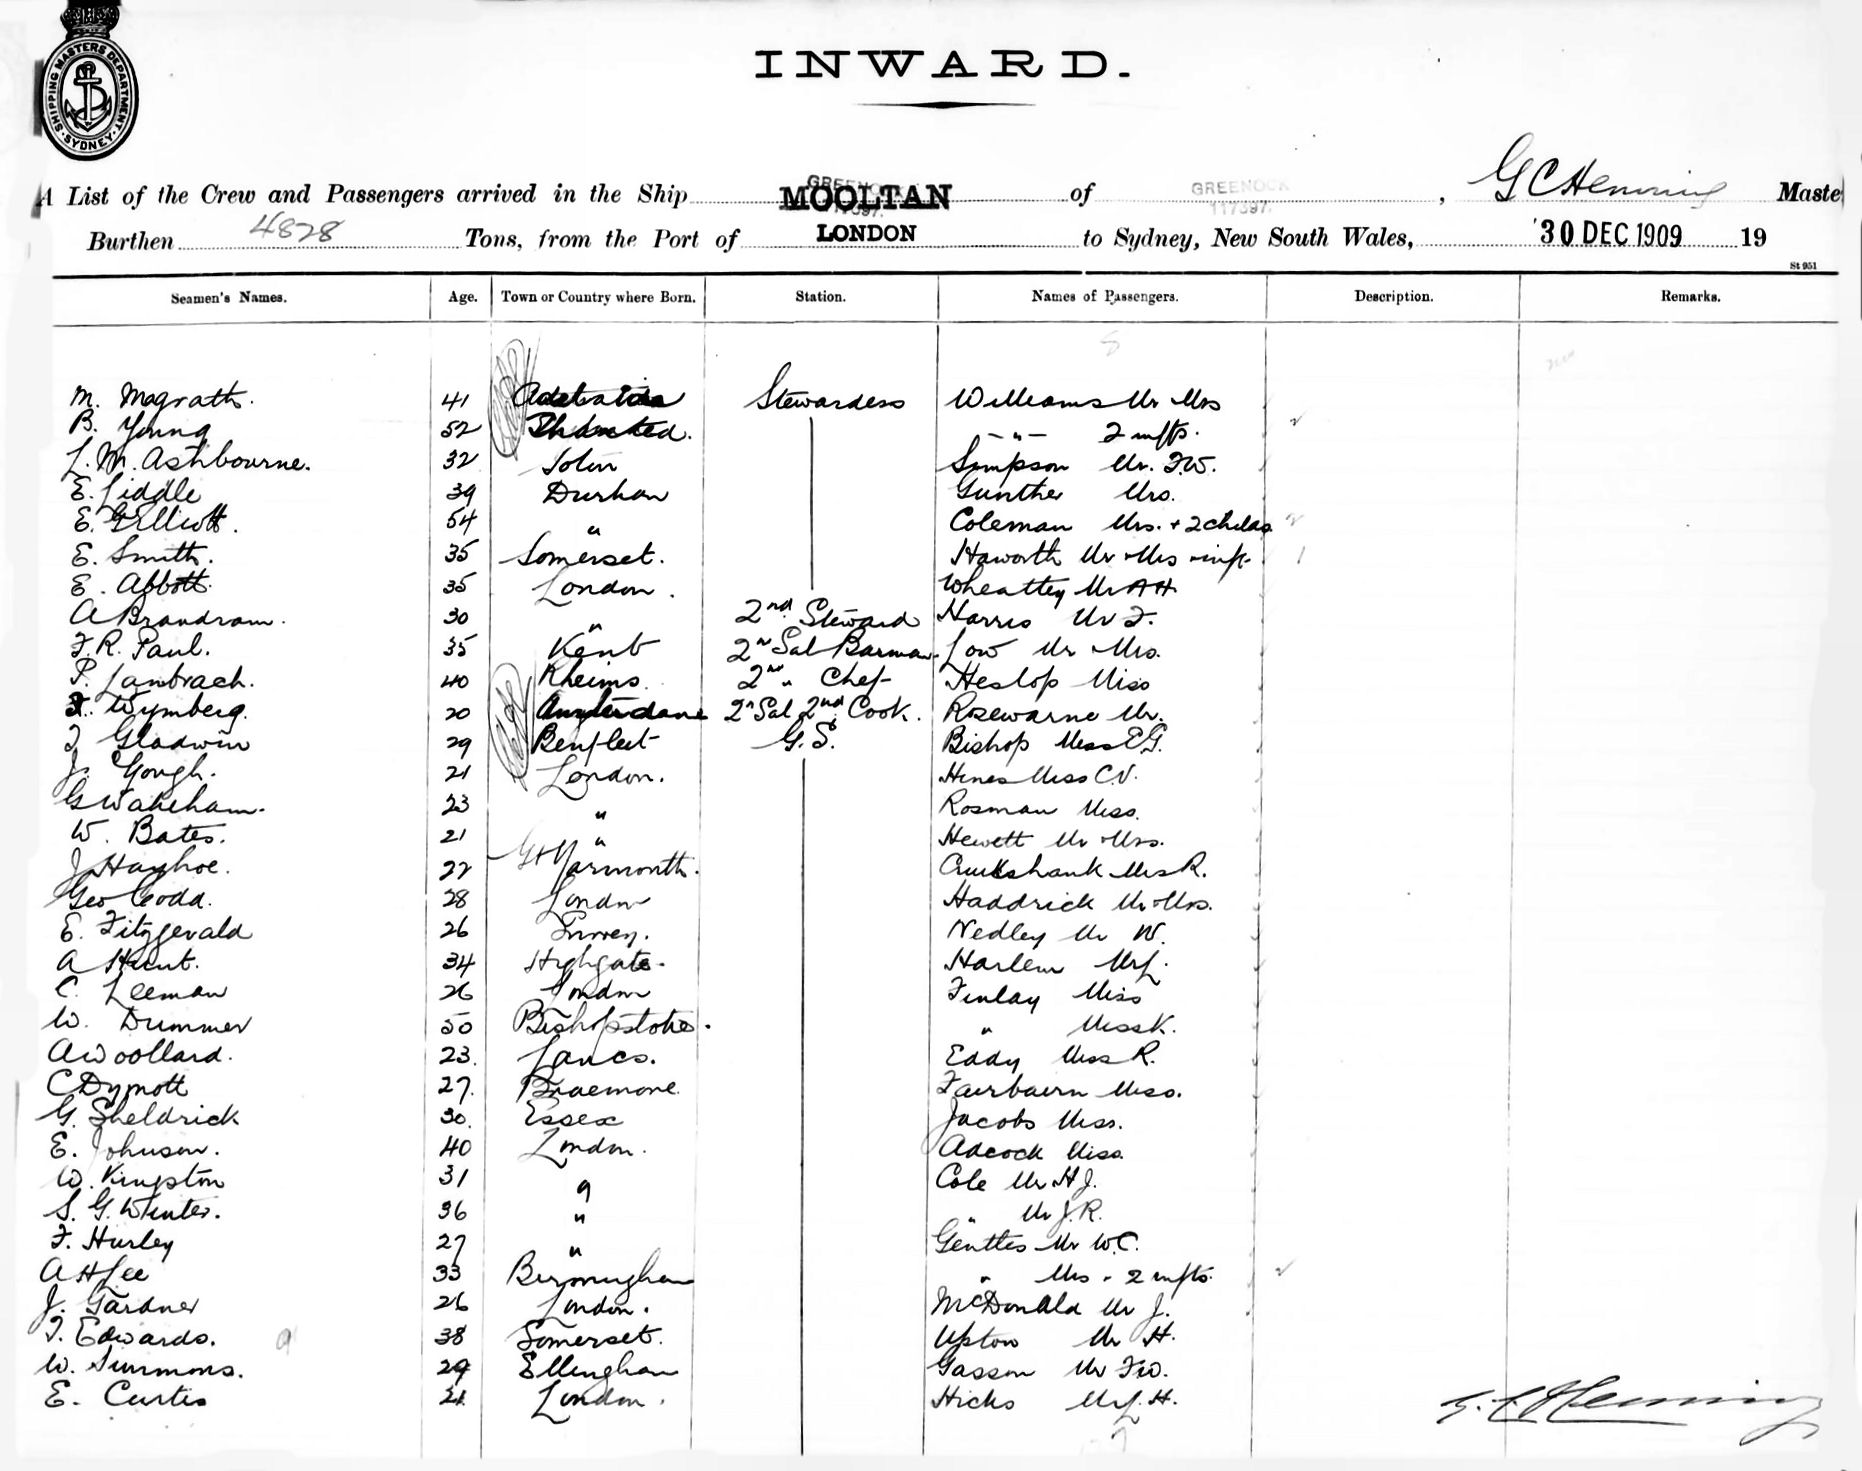 SHIPPING MASTERS DEPARTMENT. SYDNEY.
INWARD.
A List of the Crew and Passengers arrived in the Ship MOOLTAN of GREENOCK, G C Hemming Maste
Burthen 4828 Tons, from the Port of LONDON to Sydney, New South Wales, 30 DEC 1909 19
St 951
Seamen's Names. Age. Town or Country where Born. Station. Names of Passengers. Description. Remarks.
M. Magrath. 41 Adelaide Stewardess Williams Mr Mrs
B. Young 52 -"- 2 infts.
L. M. Ashbourne. 32 Simpson Mr. F.W.
E. Liddle 39 Durham Gunther Mrs.
E. Gellicott. 54 " Coleman Mrs. + 2 childn
E. Smith. 35 Somerset. Haworth Mr Mrs inft.
E. Abbott. 35 London. Wheatley Mr A H
A Brandram. 30 " 2nd Steward Harris Mr F.
F. R. Paul. 35 Kent 2nd Sal Barman Low Mr Mrs.
P. Lambrach. 40 Rheims 2nd " Chef Heslop Miss
Wymberg. 20 Amsterdam 2n Sal 2nd Cook. Rosewarne Mr.
J Gladwin 29 Benfleet G.S. Bishop Miss E G.
J. Gough. 21 London. Hines Miss C.V.
G Wakeham. 23 " Rosman Miss.
W. Bates. 21 " Hewett Mr Mrs.
J Hayhoe. 22 Gt Yarmouth. Cruikshank Mrs R.
Geo Codd. 28 London Haddrick Mr Mrs.
E. Fitzgerald 26 Surrey. Nedley Mr W.
A Hunt. 34 Highgate. Harlem Mr J.
C. Leeman 26 London Finlay Miss
W. Dummer 50 Bishopstoke. " Miss K.
A Woollard. 23. Lancs. Eddy Miss R.
C Dymott 27. Braemore. Fairbairn Miss.
G. Sheldrick 30. Essex Jacobs Miss.
E. Johnson. 40 London. Adcock Miss.
W. Kingston 31 " Cole Mr H J.
S. G. Winter. 36 " " Mr J. R.
F. Hurley 27 " Gentles Mr W.C.
A H Lee 33 Birmingham " Mrs - 2 infts.
J. Gardner 26 London. McDonald Mr J.
T. Edwards. 38 Somerset. Upton Mr H.
W. Simmons. 29 Ellingham Gasson Mr F W.
E. Curtis 21. London. Hicks Mr J. H.
G. C. Hemming